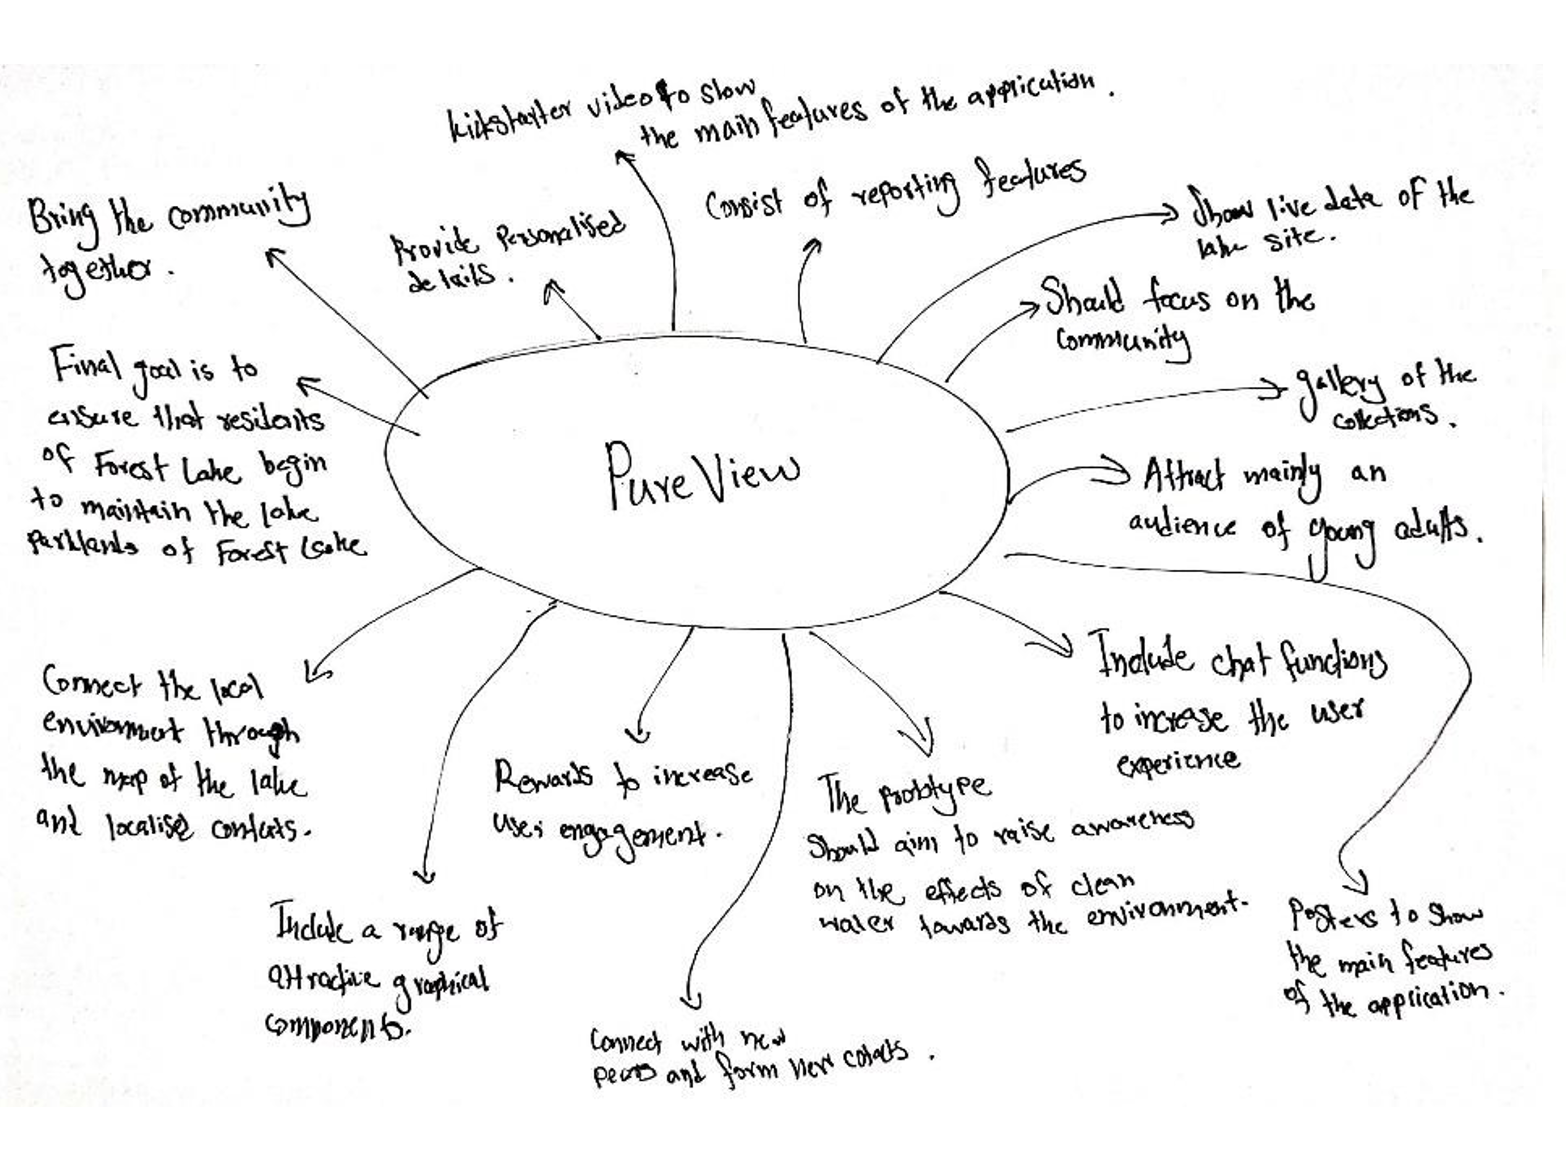 Kickstarter video to show
the main features of the application.
Consist of reporting features
Provide Personalised
details.
Bring the community
together.
Show live data of the
lake site.
Should focus on the
Community
gallery of the
collections.
Attract mainly an
audience of young adults.
Final goal is to
ensure that residents
of Forest Lake begin
to maintain the lake
parklands of Forest Lake
PureView
Connect the local
environment through
the map of the lake
and localise contexts.
Include a range of
attractive graphical
components.
Rewards to increase
user engagement.
Connect with new
and form new
The prototype
Should aim to raise awareness
on the effects of clean
water towards the environment.
Include chat functions
to increase the user
experience
Posters to show
the main features
of the application.